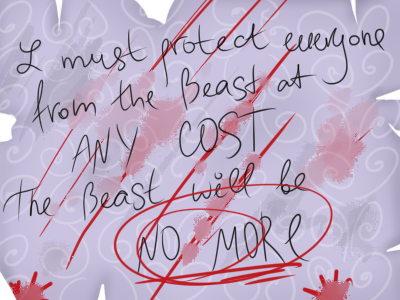 I must protect everyone
from the Beast at
ANY COST
The Beast will be
NO MORE